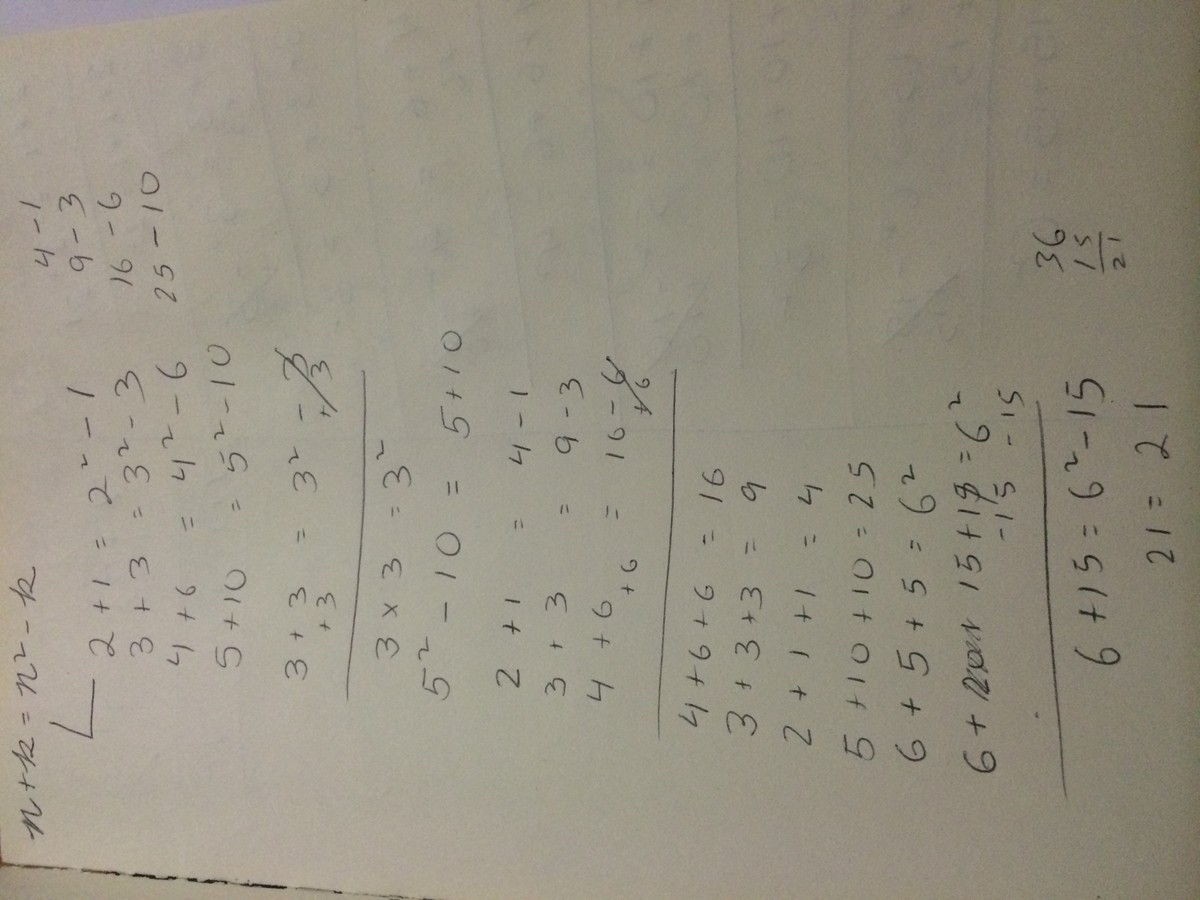 n+k = n² - k
2 + 1 = 2² - 1    4 - 1
3 + 3 = 3² - 3    9 - 3
4 + 6 = 4² - 6    16 - 6
5 + 10 = 5² - 10    25 - 10
3 + 3 = 3² - 3
+3    +3
3 × 3 = 3²
5² - 10 = 5 + 10
2 + 1 = 4 - 1
3 + 3 = 9 - 3
4 + 6 = 16 - 6
+6    +6
4 + 6 + 6 = 16
3 + 3 + 3 = 9
2 + 1 + 1 = 4
5 + 10 + 10 = 25
6 + 5 + 5 = 6²
6 + 15 + 15 = 6²
-15    -15
6 + 15 = 6² - 15
21 = 21
36
15
21